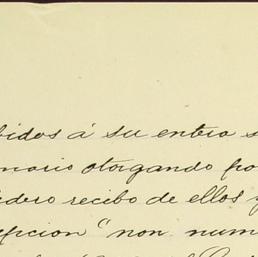 bidos á su entera s
onario otorgando po
dero recibo de ellos y
epcion "non num